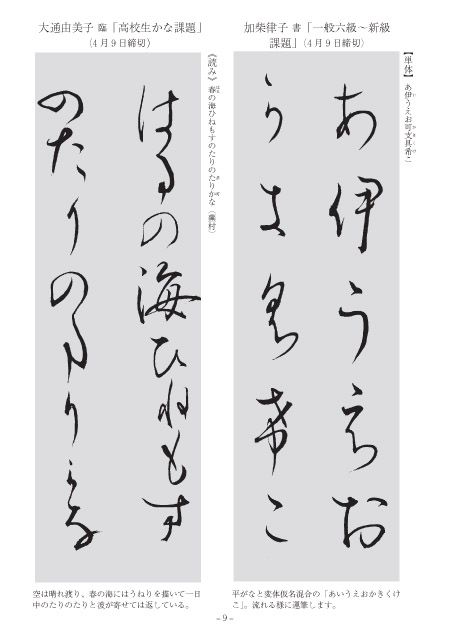 加柴律子 書「一般六級～新級
課題」(4月9日締切)
【単体】 あ伊うえお可支具希こ
あ伊うえお
可支具希こ
平がなと変体仮名混合の「あいうえおかきくけ
こ」。流れる様に運筆します。
大通由美子 臨「高校生かな課題」
(4月9日締切)
《読み》 春の海ひねもすのたりのたりかな (蕪村)
はるの海ひねもす
のたりのたりかな
空は晴れ渡り、春の海にはうねりを描いて一日
中のたりのたりと波が寄せては返している。
- 9 -